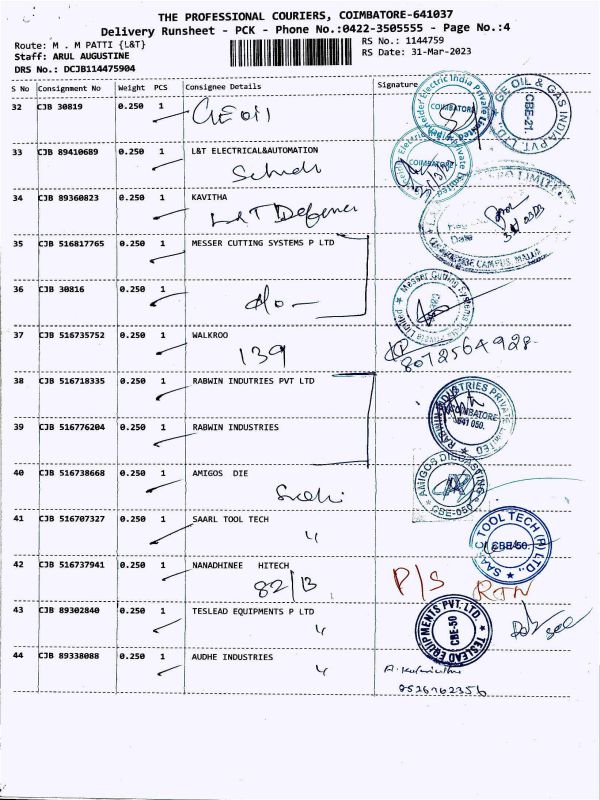 THE PROFESSIONAL COURIERS, COIMBATORE-641037
Delivery Runsheet - PCK - Phone No.:0422-3505555 - Page No.:4
Route: M . M PATTI {L&T}
RS No.: 1144759
Staff: ARUL AUGUSTINE
RS Date: 31-Mar-2023
DRS No.: DCJB114475904
S No Consignment No Weight PCS Consignee Details Signature
32 CJB 30819 0.250 1 GE Oil
GE OIL & GAS INDIA PVT. LTD. CBE-21.
COIMBATORE
33 CJB 89410689 0.250 1 L&T ELECTRICAL&AUTOMATION
COIMBATORE
34 CJB 89360823 0.250 1 KAVITHA
L&T Defence
Date
35 CJB 516817765 0.250 1 MESSER CUTTING SYSTEMS P LTD
36 CJB 30816 0.250 1
Messer Cutting Systems India Private Limited
37 CJB 516735752 0.250 1 WALKROO
139
8072564928
38 CJB 516718335 0.250 1 RABWIN INDUTRIES PVT LTD
RABWIN INDUSTRIES PRIVATE LIMITED COIMBATORE 641 050.
39 CJB 516776204 0.250 1 RABWIN INDUSTRIES
40 CJB 516738668 0.250 1 AMIGOS DIE
AMIGOS DIECASTING CBE-050
41 CJB 516707327 0.250 1 SAARL TOOL TECH
TOOL TECH (P) LTD., CBE-50.
42 CJB 516737941 0.250 1 NANADHINEE HITECH
82/B
P/S RTN
43 CJB 89302840 0.250 1 TESLEAD EQUIPMENTS P LTD
TESLEAD EQUIPMENTS PVT. LTD. CBE-50
44 CJB 89338088 0.250 1 AUDHE INDUSTRIES